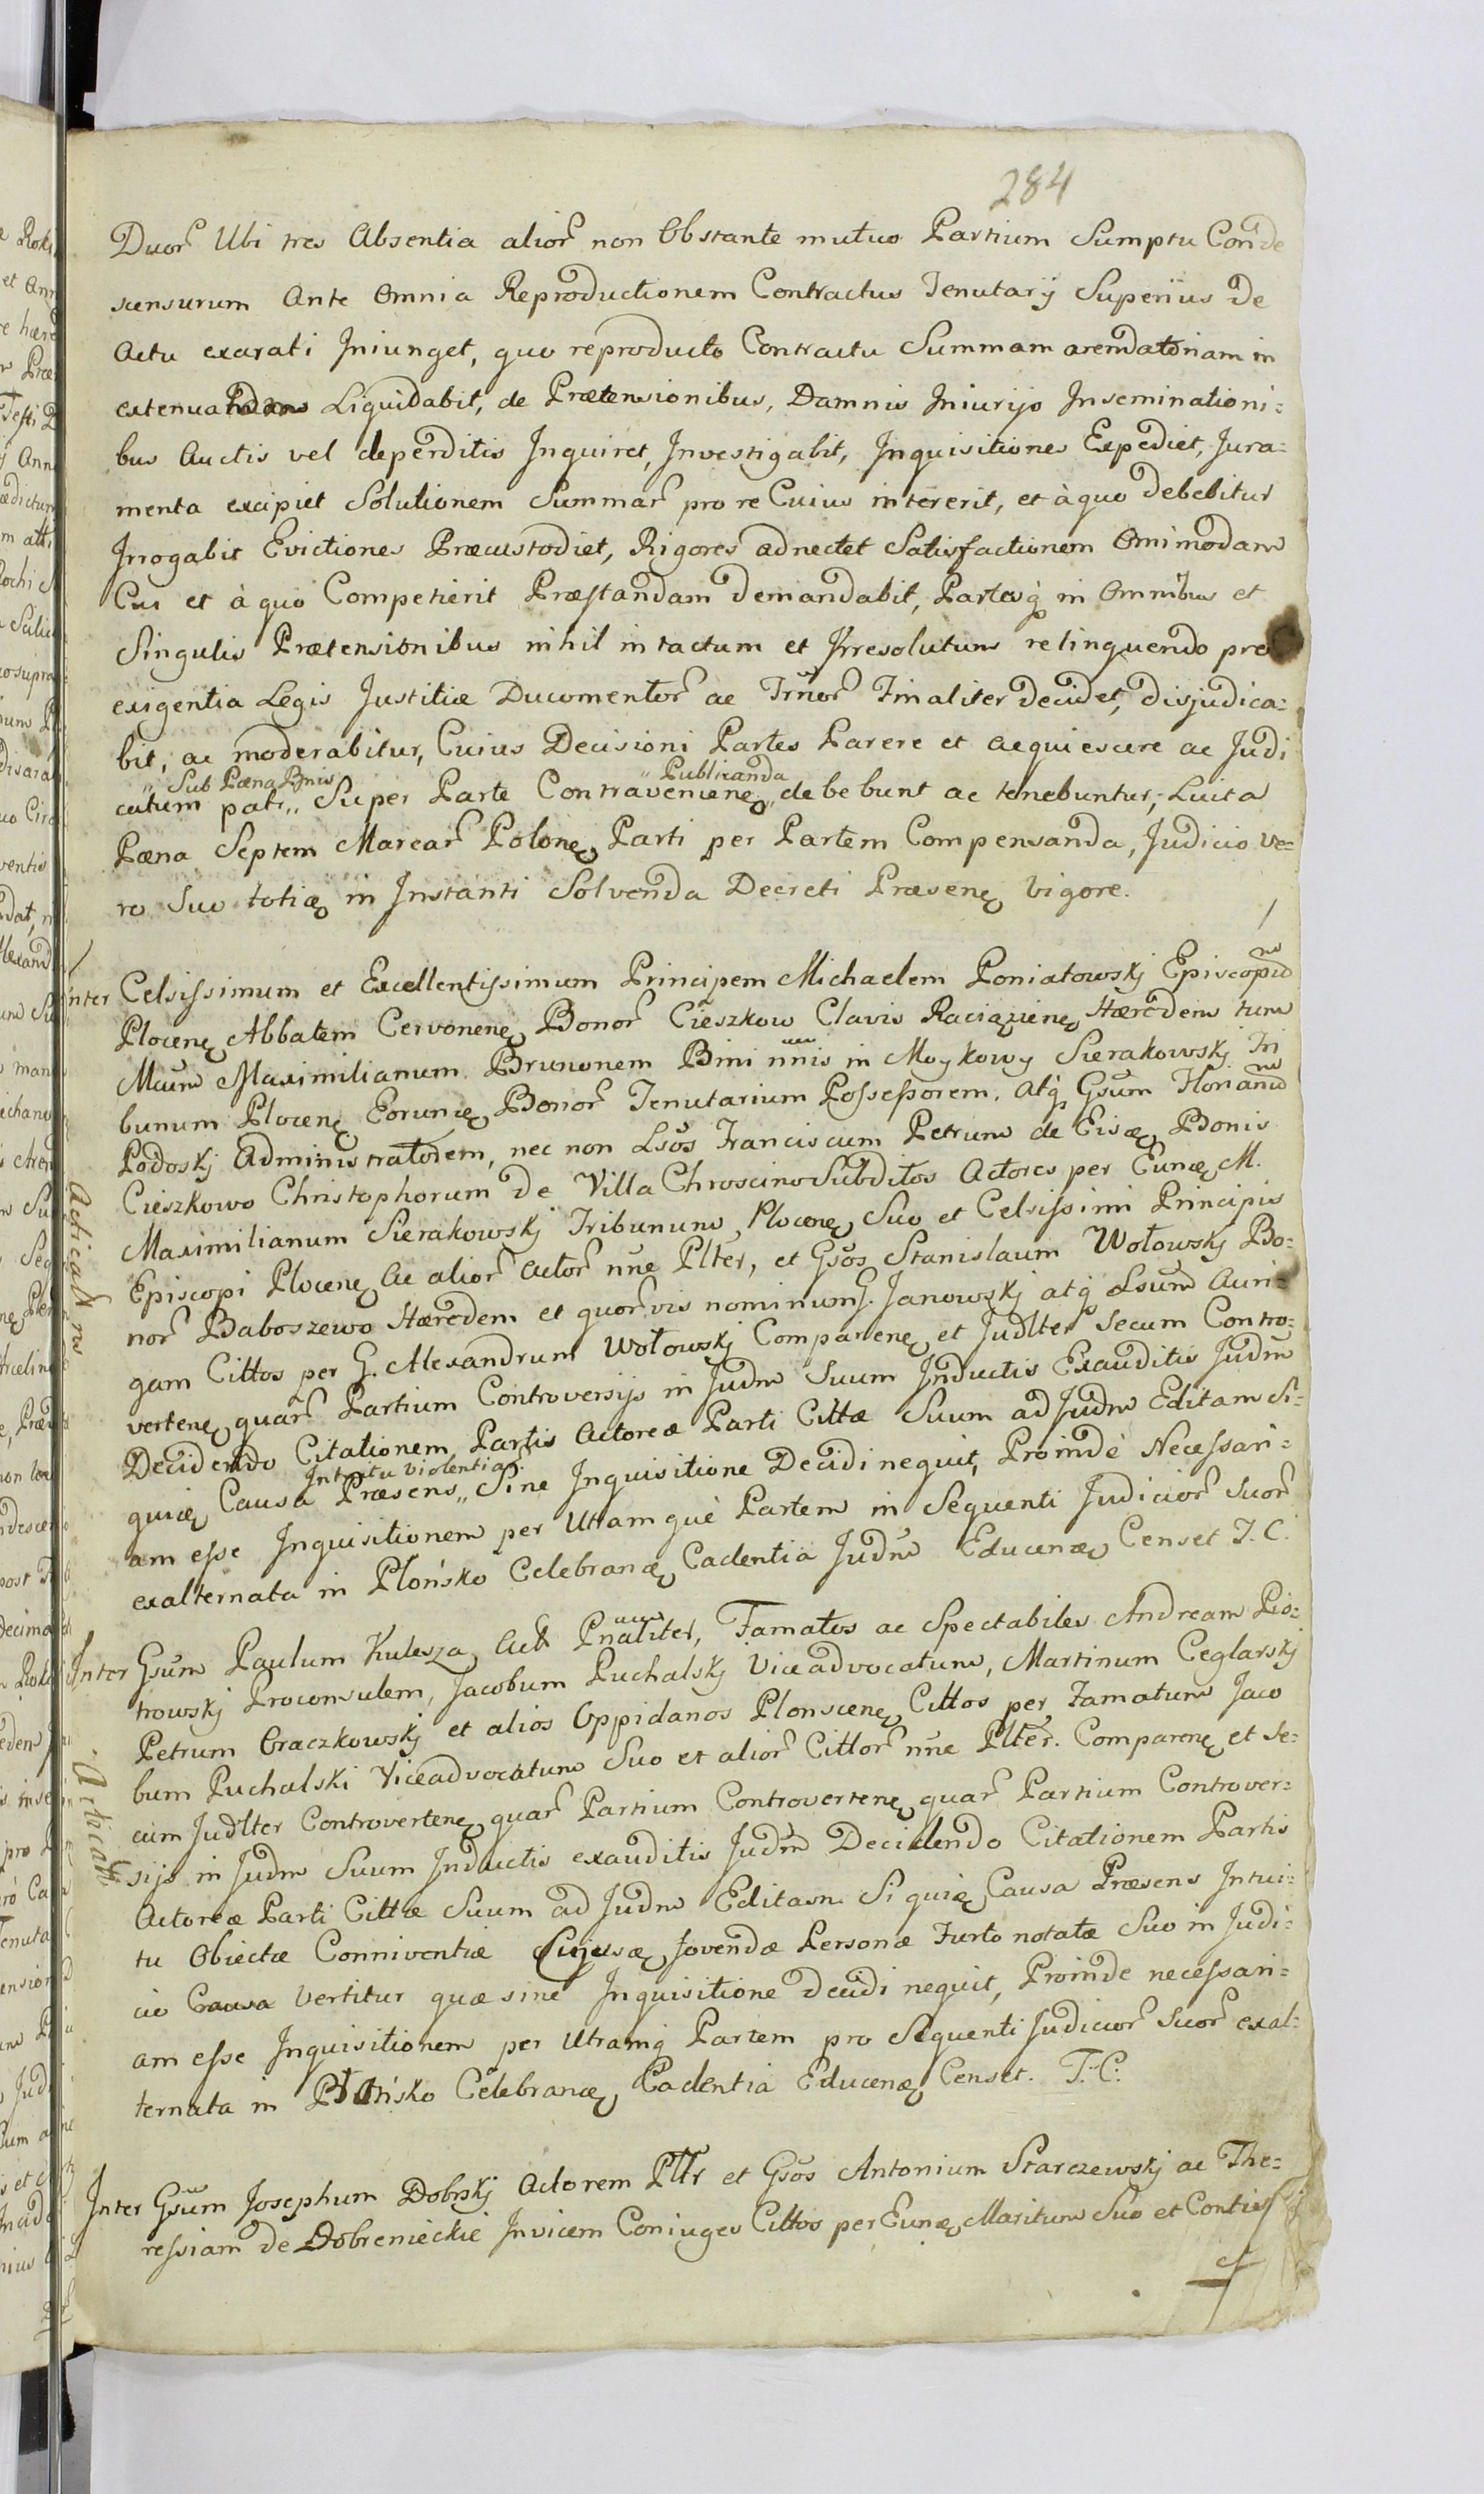 284
Duor Ubi tres Absentia alior non Obstante mutuo Partium Sumptu Conde
scensurum Ante Omnia Reproductionem Contractus Tenutarij Superius de
Actu exarati Iniunget, quo reproducto Contractu Summam arendatoriam in
extenuatione Liquidabit, de Prætensionibus, Damnis Iniurijs Inseminationi=
bus Auctis vel deperditis Inquiret, Investigabit, Inquisitiones Expediet, Jura=
menta excipiet Solutionem Summar pro re Cuius intererit, et à quo debebitur
Irrogabit Evictiones Præcustodiet, Rigores adnectet Satisfactionem Omimodam
Cui et à quo Competierit Præstandam demandabit, Partesq in Omnibus et
Singulis Prætensionibus nihil intactum et Irresolutum relinquendo pro
exigentia Legis Justitiæ Documentor ac Trnor Finaliter decidet, disjudica=
bit, ac moderabitur, Cuius Decisioni Partes Parere et acquiescere ac Judi
catum pati „ Sub Pæna Bnis „ Super Parte Contravenienę „ Publicanda „ debebunt ac tenebuntur, Luita
Pæna Septem Marcar Polonę, Parti per Partem Compensanda, Judicio ve=
ro Suo totię in Instanti Solvenda Decreti Præsenę Vigore.
Inter Celsissimum et Excellentissimum Principem Michaelem Poniatowskj Episcopum
Plocenę Abbatem Cervonenę Bonor Cieszkow Clavis Raciązienę Hæredem tum
Mcum Maximilianum Brunonem Bini nnis in Moykowy Sierakowskj Tri
bunum Plocenę Eorumę Bonor Tenutarium Possessorem, atq Gsum Florianum
Podoskj Administratorem, nec non Lsos Franciscum Petrum de Eisę Bonis
Cieszkowo Christophorum de Villa Chroscino Subditos Actores per Eunę M.
Maximilianum Sierakowskj Tribunum Plocenę Suo et Celsissimi Principis
Episcopi Plocenę ac alior actor nne Plter, et Gsos Stanislaum Wołowskj Bo=
nor Baboszewo Hæredem et quorvis nominum G. Janowskj atq Lsum Auri=
gam Cittos per G. Alexandrum Wołowskj Comparenę et Judlter Secum Contro=
vertenę quar Partium Controversijs in Judm Suum Inductis Exauditis Judm
Decidendo Citationem Partis Actoreæ Parti Cittæ Suum ad Judm Editam Si=
quię Causa Præsens „ Intuitu Violentiar Sine Inquisitione Decidi nequit, Proindè Necessari=
am esse Inquisitionem per Utramquè Partem in Sequenti Judicior Suor
exalternata in Płońsko Celebranę Cadentia Judm Educenę Censet T. C.
Acticat
Inter Gsum Paulum Kulesza Act Pnaliter, Famatos ac Spectabiles Andream Pio=
trowskj Proconsulem, Jacobum Puchalskj Viceadvocatum, Martinum Ceglarskj
Petrum Graczkowskj et alios Oppidanos Plonscenę Cittos per Famatum Jaco
bum Puchalski Viceadvocatum Suo et alior Cittor nne Plter. Comparenę et Se=
cum Judlter Controvertenę quar Partium Controvertenę quar Partium Controver=
sijs in Judm Suum Inductis exauditis Judm Decidendo Citationem Partis
Actoreæ Parti Cittæ Suum ad Judm Editam Siquię Causa Præsens Intui=
tu Obiectæ Conniventiæ Cujusę fovendæ Personæ Furto notatæ Suo in Judi=
cio Causa Vertitur quæ sine Inquisitione decidi nequit, Proinde necessari=
am esse Inquisitionem per Utramq Partem pro Sequenti Judicior Suor exal=
ternata in Płońsko Celebranę Cadentia Educenę Censet. T. C.
Acticat
Inter Gsum Josephum Dobrskj Actorem Pltr et Gsos Antonium Starczewskj ac The=
ressiam de Dobrenieckie Invicem Coniuges Cittos per Eunę Maritum Suo et